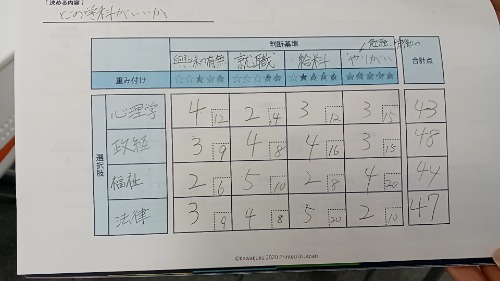 「決める内容」
どの学科がいいか
判断基準
興味の有無 就職 給料 やりがい 合計点
重み付け ☆☆★★★ ☆☆☆★★ ☆★★★★ ★★★★★
選択肢
心理学 4 12 2 4 3 12 3 15 43
政経 3 9 4 8 4 16 3 15 48
福祉 2 6 5 10 2 8 4 20 44
法律 3 9 4 8 5 20 2 10 47
©Kawaijuku 2020 Printed in Japan